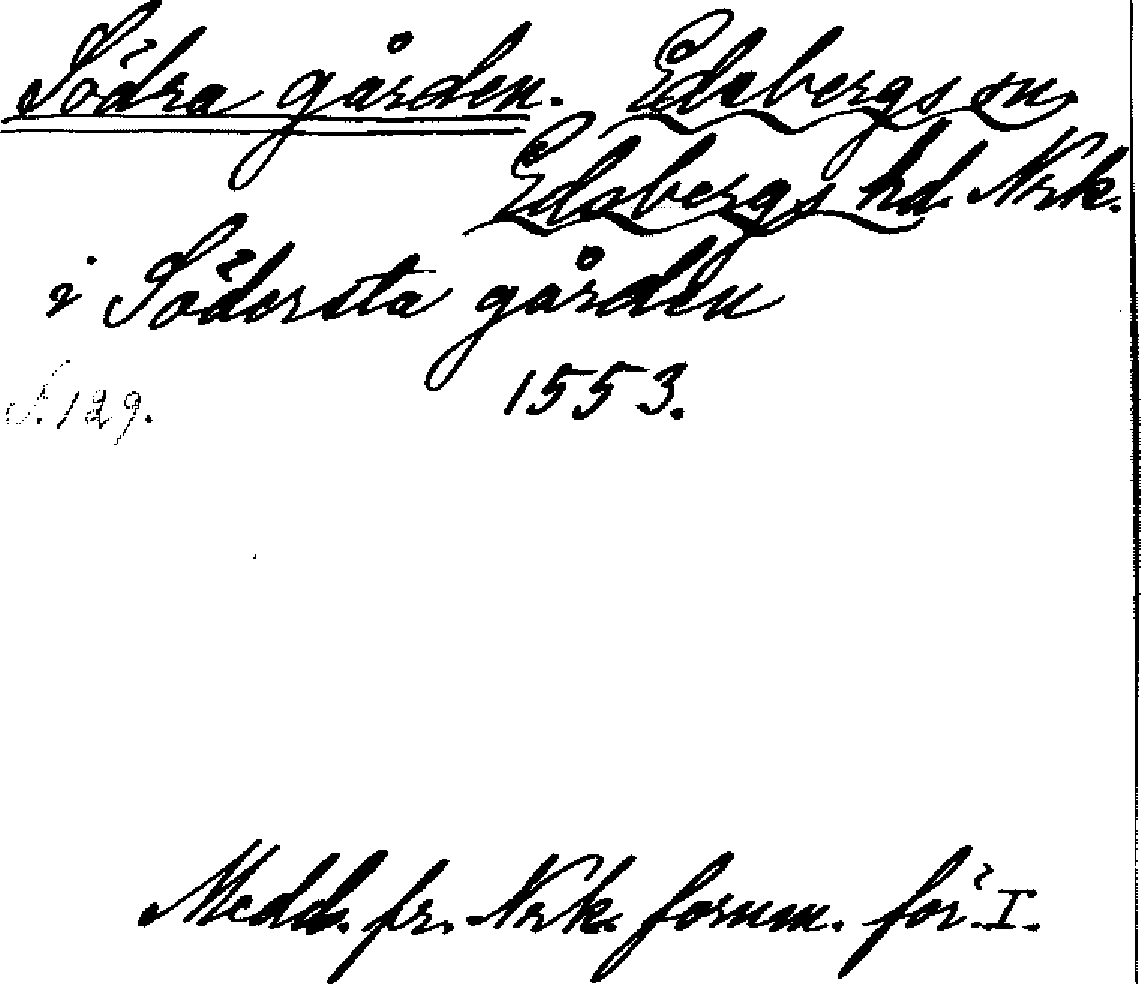 Södra gården. Edsbergs sn
Edsbergs hd. Nrk.
i Södersta gården
1553.
S. 129.
Medd. fr. Nrk. fornm. för. I.